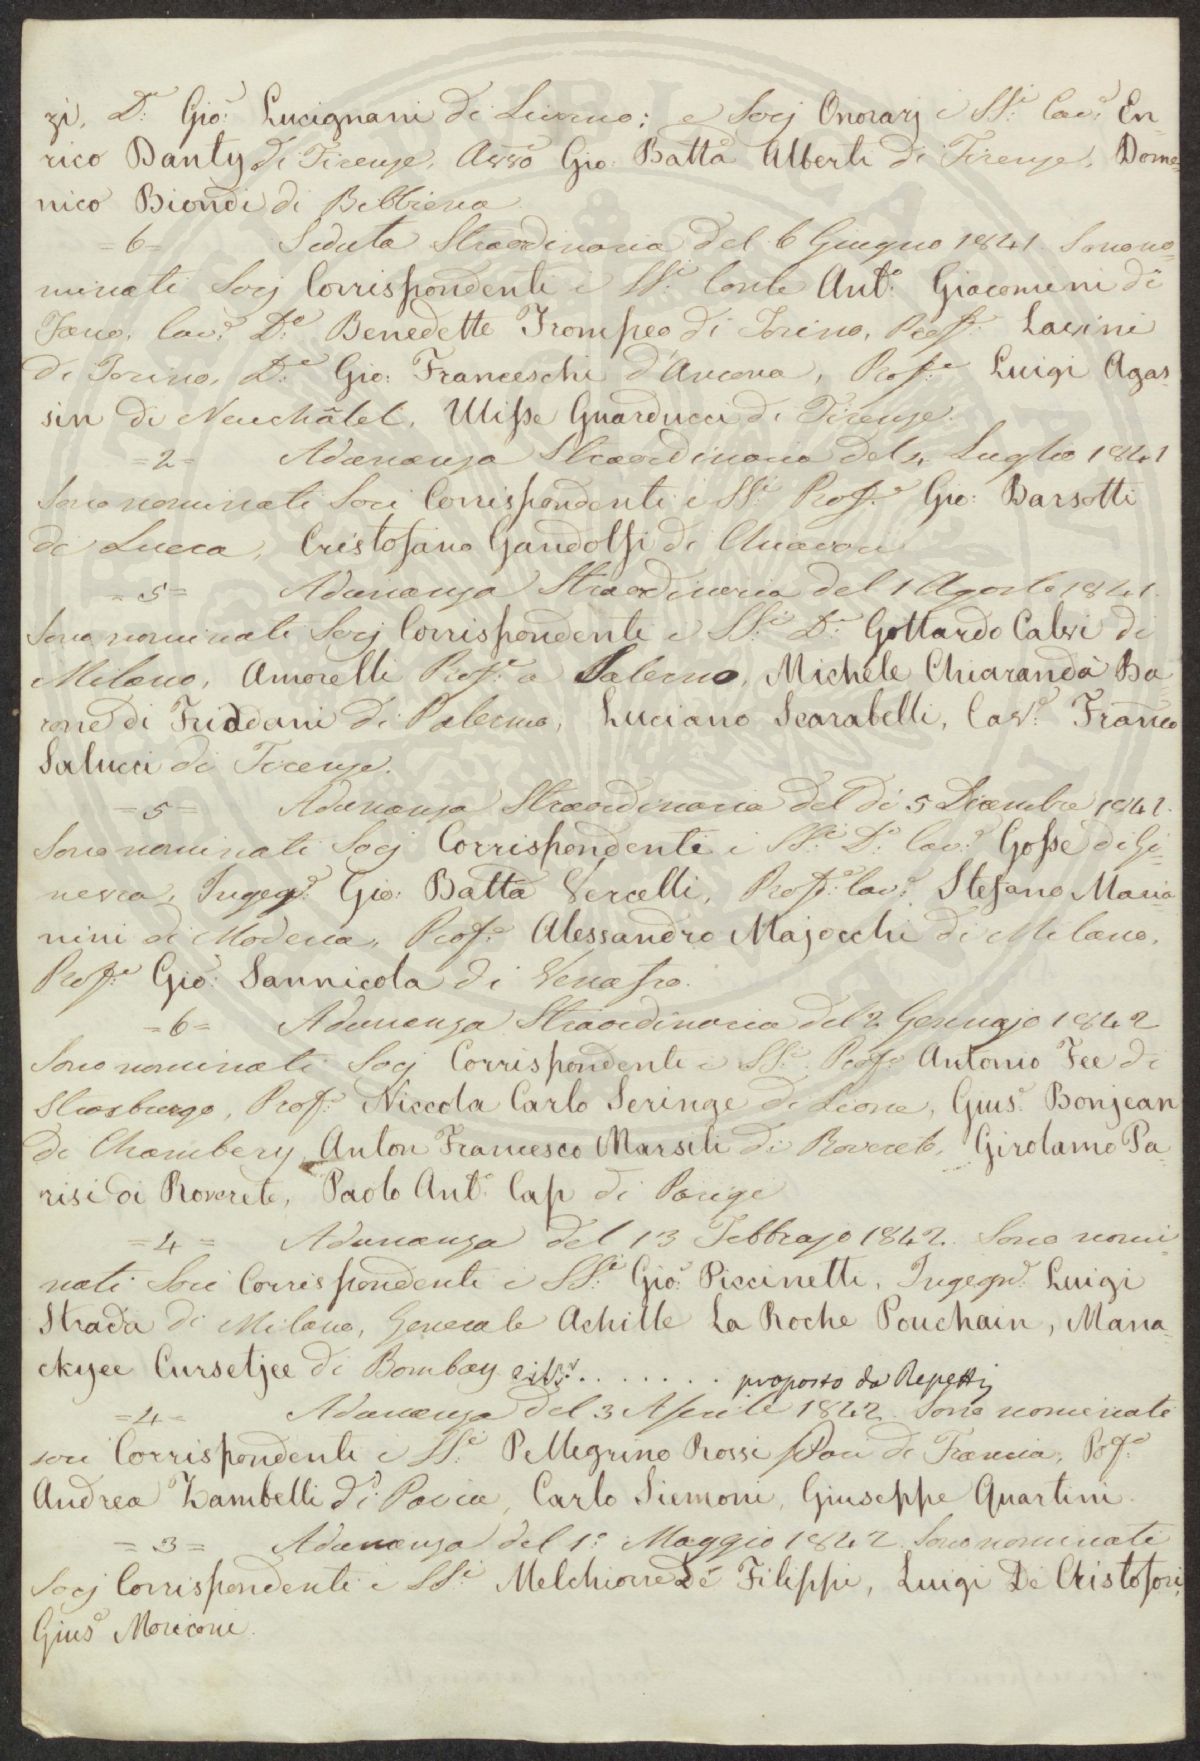 zi, D.r Gio: Lucignani di Livorno; e Socj Onorarj i SS.i Cav.e En-
rico Danty di Firenze, Avv.o Gio: Batta Alberti di Firenze, Dome-
nico Biondi di Bibbiena
=6= Seduta Straordinaria del 6 Giugno 1841. Sono no-
minati Socj Corrispondenti i SS.i Conte Ant.o Giacomini di
Fano, Cav.e D.re Benedetto Trompeo di Torino, Prof.e Lavini
di Torino, D.re Gio: Franceschi d'Ancona, Prof.e Luigi Agas-
sin di Neuchâtel, Ulisse Guarducci di Firenze.
=2= Adunanza Straordinaria del 4 Luglio 1841
Sono nominati Soci Corrispondenti i SS.i Prof.e Gio: Barsotti
di Lucca, Cristofano Gandolfi di Chiavari
=5= Adunanza Straordinaria del 1 Agosto 1841.
Sono nominati Socj Corrispondenti i SS.i D.r Gottardo Calvi di
Milano, Amorelli Prof.e a Salerno, Michele Chiarandà Ba-
rone di Friddani di Palermo, Luciano Scarabelli, Cav.e Franco
Salucci di Firenze.
=5= Adunanza Straordinaria del dì 5 Dicembre 1841.
Sono nominati Socj Corrispondenti i SS.i D.r Cav.e Gosse di Gi-
nevra, Ingeg.e Gio: Batta Vercelli, Prof.e Cav.e Stefano Maria-
nini di Modena, Prof.e Alessandro Majocchi di Milano,
Prof.e Gio: Sannicola di Venafro.
=6= Adunanza Straordinaria del 2 Gennajo 1842
Sono nominati Socj Corrispondenti i SS.i Prof.e Antonio Fee di
Strasburgo, Prof.e Niccola Carlo Seringe di Lione, Gius.e Bonjean
di Chambery, Anton Francesco Marsili di Rovereto, Girolamo Pa-
risi di Rovereto, Paolo Ant.o Cap di Parigi
=4= Adunanza del 13 Febbrajo 1842. Sono nomi-
nati Soci Corrispondenti i SS.i Gio: Piccinetti, Ingegn.e Luigi
Strada di Milano, Generale Achille La Roche Pouchain, Mana-
ckyee Cursetjee di Bombay . . . . . . . proposto da Repetti
=4= Adunanza del 3 Aprile 1842. Sono nominati
soci Corrispondenti i SS.i Pellegrino Rossi Pari di Francia, Prof.e
Andrea Zambelli di Pavia, Carlo Siemoni, Giuseppe Quartini.
=3= Adunanza del 1.o Maggio 1842. Sono nominati
Socj Corrispondenti i SS.i Melchiorre De Filippi, Luigi De Cristofori,
Gius.e Moriconi.